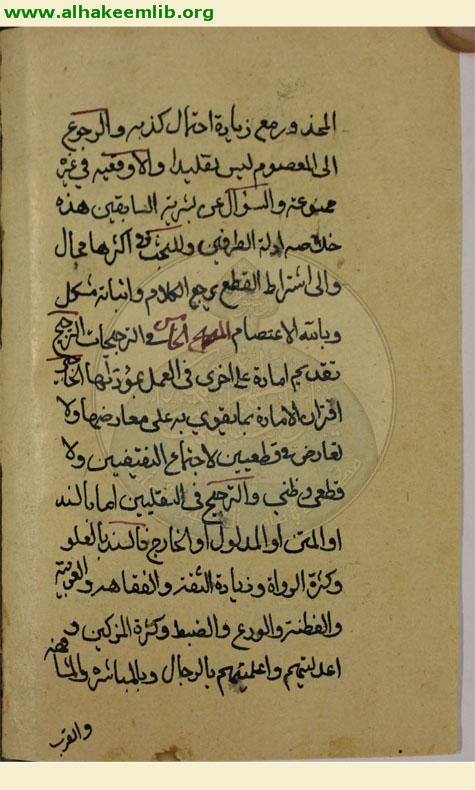 www.alhakeemlib.org
المحذور مع زيادة احتمال كذبه والرجوع
الى المعصوم ليس تقليدا والاوقعيه في غيره
ممنوعه والسؤال عن بشريته السابقين هذه
خلاصه ادلة الطرفين وللبحث في اكثرها مجال
والى اشتراط القطع يرجع الكلام واثباته مشكل
وبالله الاعتصام المنهج الخامس في الترجيحات الترجيح
تقديم امارة على اخرى في العمل بمؤداها
اقتران الامارة بما يقوي به على معارضها ولا
تعارض في قطعيين لاجتماع النقيضين ولا
قطعي وظني والترجيح في النقليين اما بالسند
او المتن او المدلول او الخارج فالسند بالعلو
وكثرة الرواة وزيادة الثقة والفقاهه والعربية
والفطنة والورع والضبط وكثرة المزكين و
اعدليتهم واعلميتهم بالرجال وبالمباشره والمشافهه
والقرب